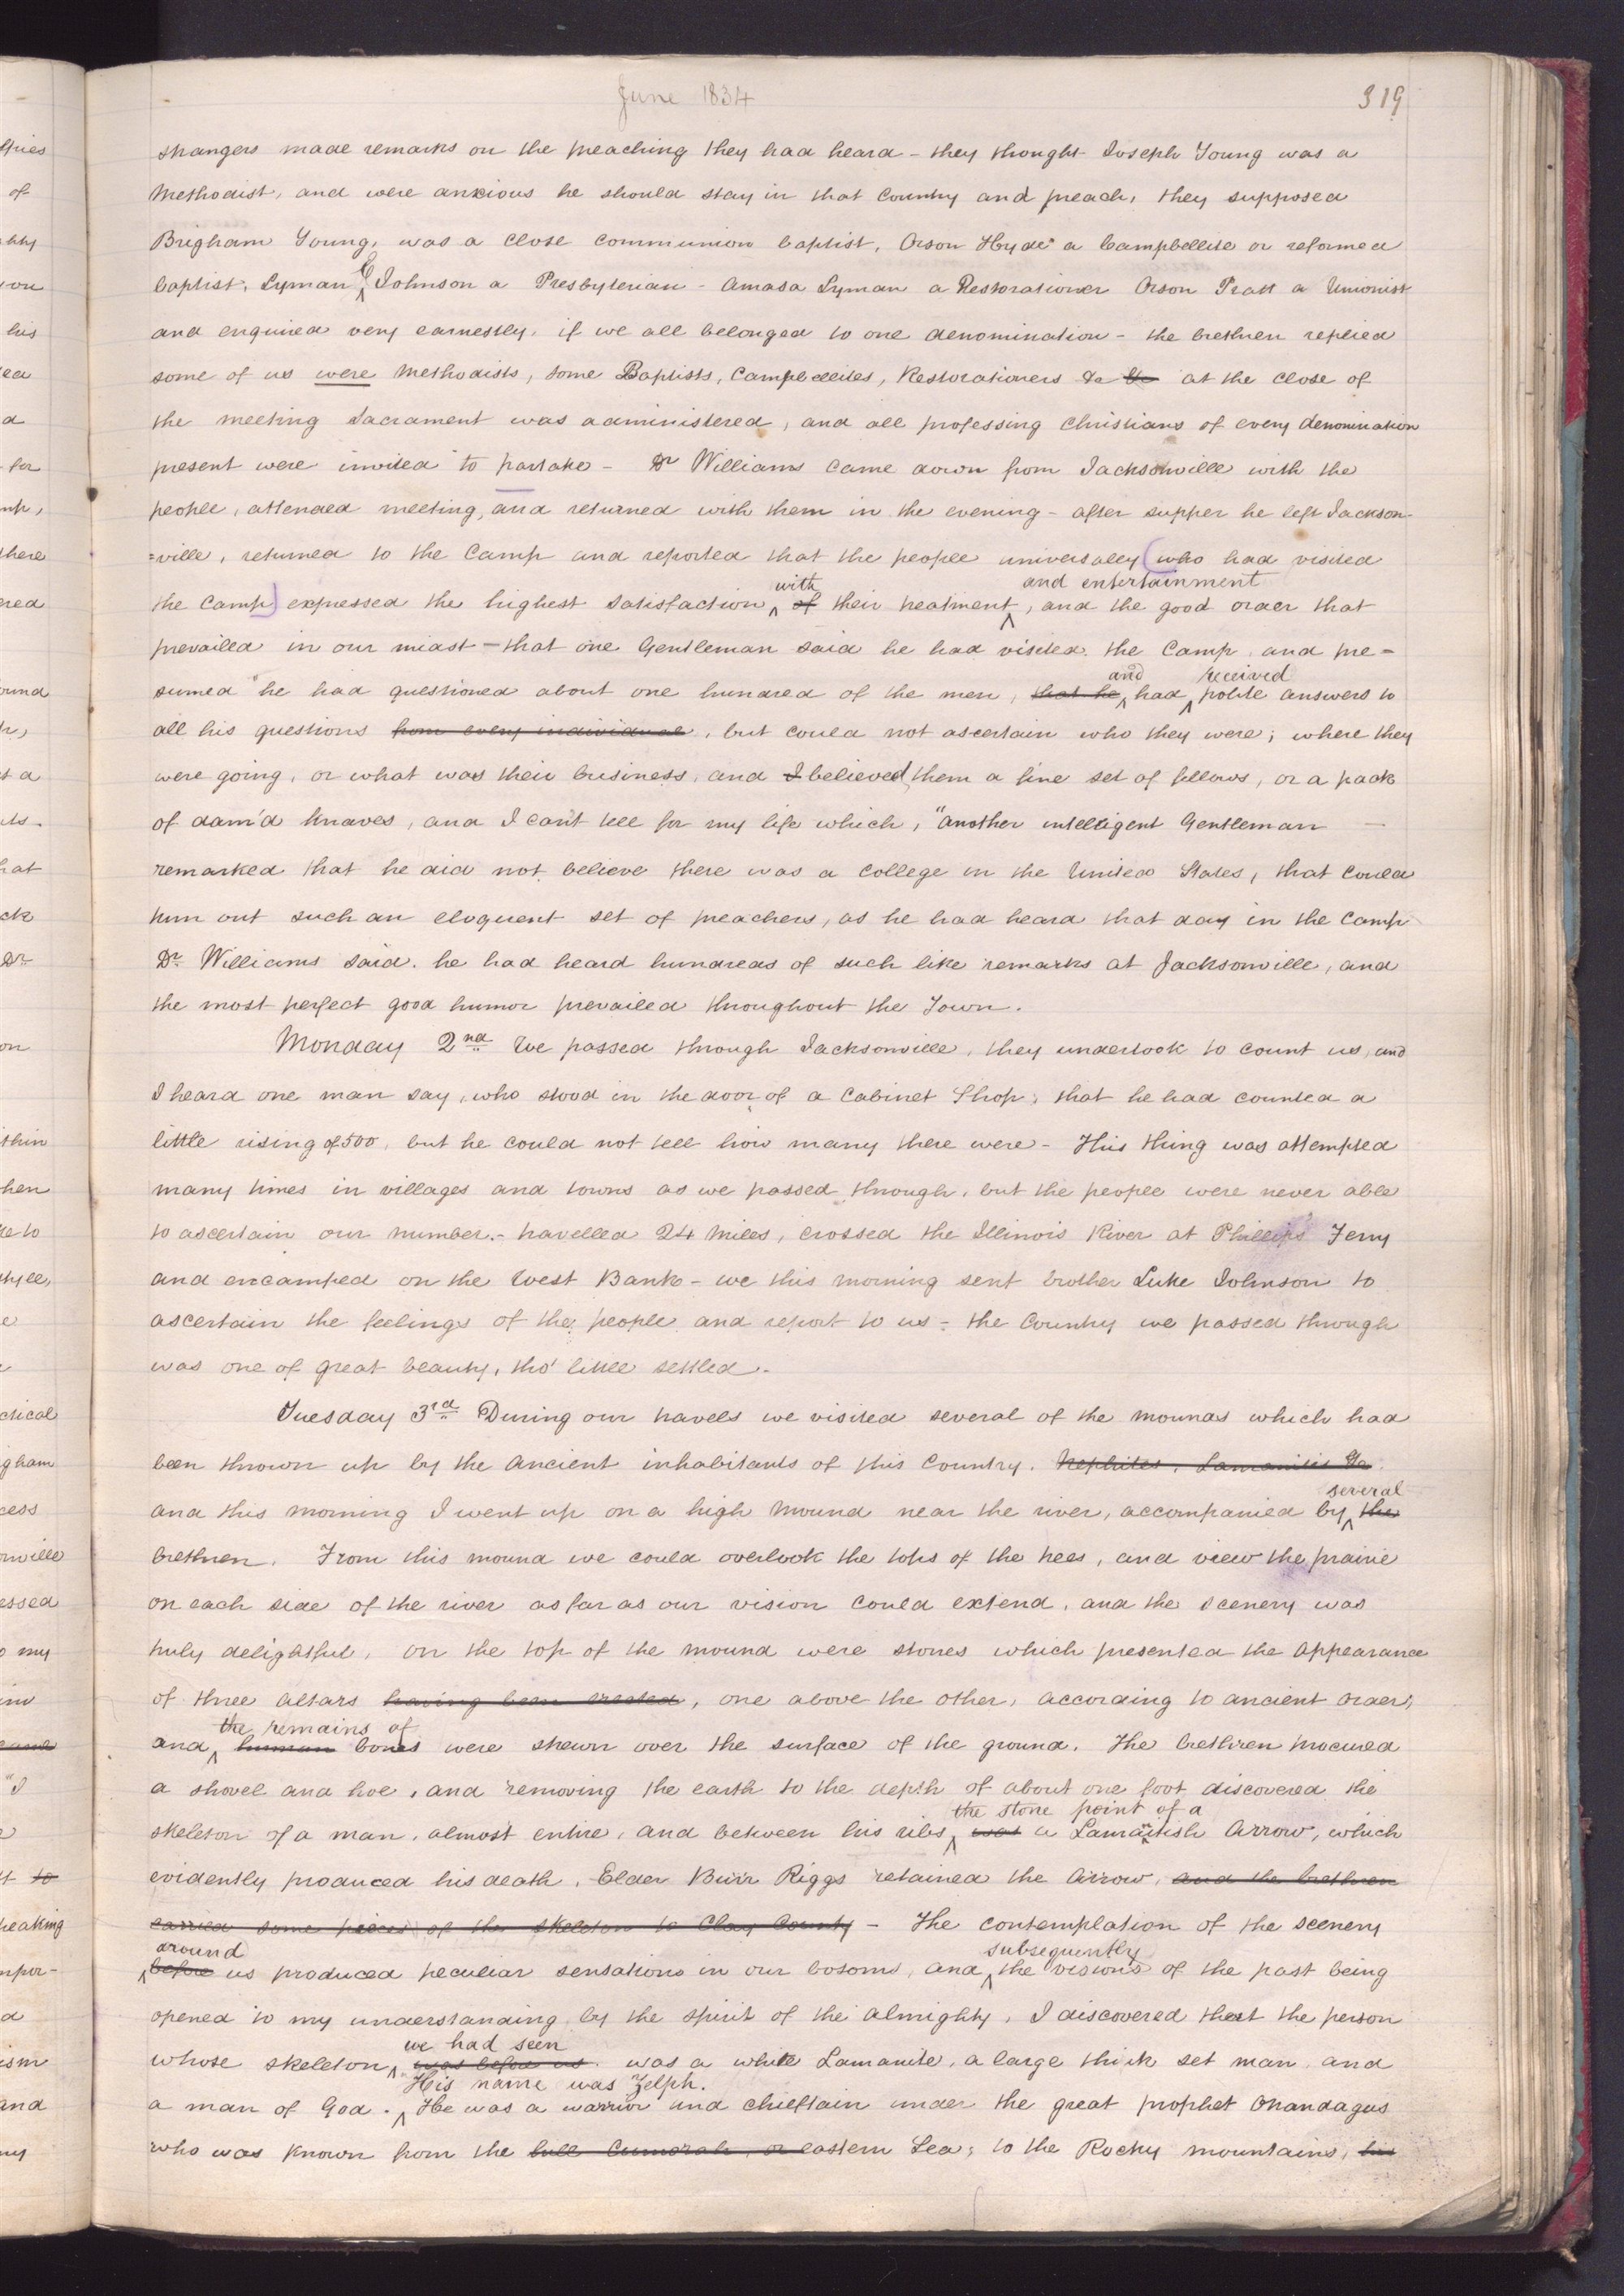 June 1834
319
strangers made remarks on the preaching they had heard - they thought Joseph Young was a
Methodist, and were anxious he should stay in that Country and preach, they supposed
Brigham Young, was a close communion baptist, Orson Hyde a Campbellite or reformed
baptist, Lyman E Johnson a Presbyterian - Amasa Lyman a Restorationer Orson Pratt a Unionist
and enquired very earnestly, if we all belonged to one denomination - the brethren replied
some of us were Methodists, some Baptists, Campbellites, Restorationers &c &c at the close of
the meeting Sacrament was administered, and all professing Christians of every denomination
present were invited to partake - Dr Williams came down from Jacksonville with the
people, attended meeting, and returned with them in the evening - after supper he left Jackson-
=ville, returned to the Camp and reported that the people universally (who had visited
with and entertainment
the Camp) expressed the highest satisfaction of their treatment, and the good order that
prevailed in our midst - that one Gentleman said he had visited the Camp and pre=
and received
sumed he had questioned about one hundred of the men, that he had polite answers to
all his questions from every individual, but could not ascertain who they were; where they
were going, or what was their business, and I believed them a fine set of fellows, or a pack
of dam'd knaves, and I can't tell for my life which, "another intelligent Gentleman
remarked that he did not believe there was a college in the United States, that could
turn out such an eloquent set of preachers, as he had heard that day in the Camp
Dr Williams said. he had heard hundreds of such like remarks at Jacksonville, and
the most perfect good humor prevailed throughout the Town.
Monday 2nd We passed through Jacksonville, they undertook to count us, and
I heard one man say, who stood in the door of a Cabinet Shop, that he had counted a
little rising of 500, but he could not tell how many there were - This thing was attempted
many times in villages and towns as we passed through, but the people were never able
to ascertain our number.- travelled 24 miles, crossed the Illinois River at Phillips Ferry
and encamped on the West Bank - we this morning sent brother Luke Johnson to
ascertain the feelings of the people and report to us - the Country we passed through
was one of great beauty, tho' little settled.
Tuesday 3rd During our travels we visited several of the mounds which had
been thrown up by the Ancient inhabitants of this Country. Nephites, Lamanites &c
several
and this morning I went up on a high mound near the river, accompanied by the
brethren. From this mound we could overlook the tops of the trees, and view the prairie
on each side of the river as far as our vision could extend, and the scenery was
truly delightful, on the top of the mound were stones which presented the appearance
of three altars having been erected, one above the other, according to ancient order;
the remains of
and human bones were strewn over the surface of the ground. The brethren procured
a shovel and hoe, and removing the earth to the depth of about one foot discovered the
the stone point of a
skeleton of a man, almost entire, and between his ribs was a Lamanitish Arrow, which
evidently produced his death, Elder Burr Riggs retained the Arrow, and the brethren
carried some pieces of the skeleton to Clay County - The contemplation of the scenery
around subsequently
before us produced peculiar sensations in our bosoms, and the visions of the past being
opened to my understanding by the spirit of the Almighty, I discovered that the person
we had seen
whose skeleton was before us was a white Lamanite, a large thick set man, and
His name was Zelph.
a man of God. He was a warrior and chieftain under the great prophet Onandagus
who was known from the hill Cumorah, or eastern Sea, to the Rocky mountains, his